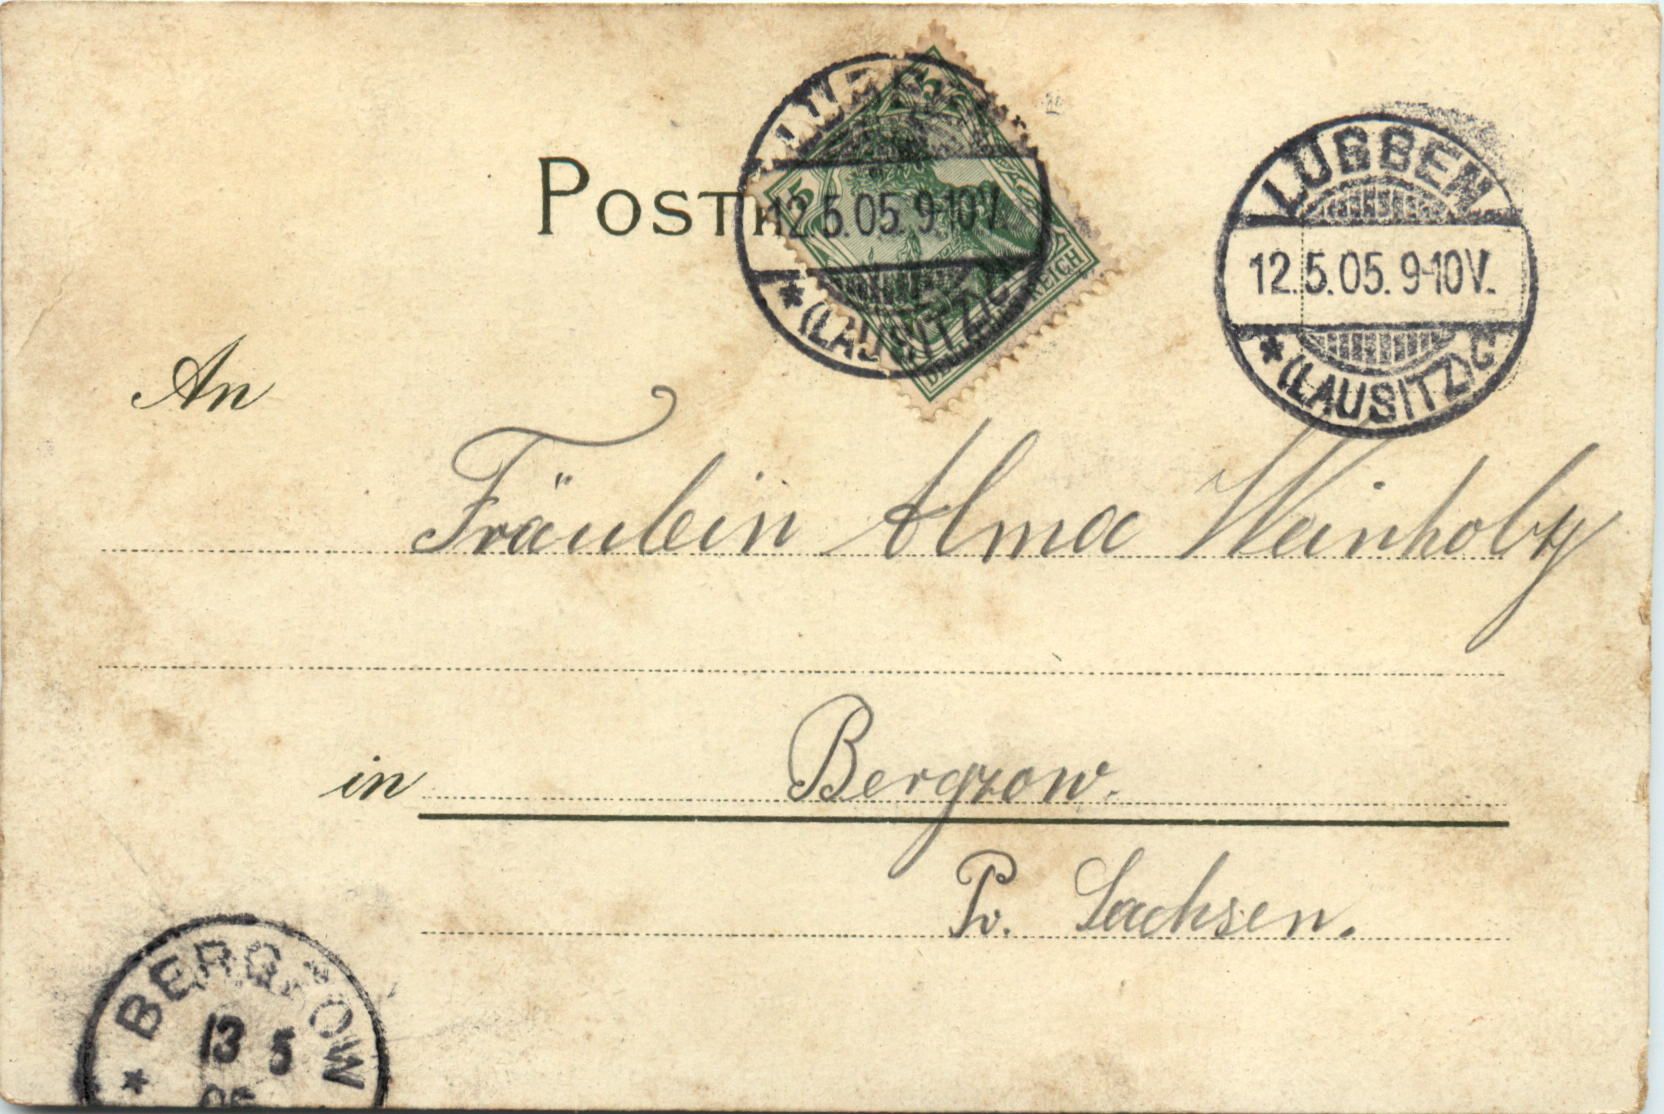 POSTK
LÜBBEN
12.5.05.9-10V.
*(LAUSITZ)
5
DEUTSCHES REICH
LÜBBEN
12.5.05.9-10V.
*(LAUSITZ)C
An
Fräulein Alma Weinholtz
in Bergzow.
Pr. Sachsen.
BERGZOW
13 5
05
*